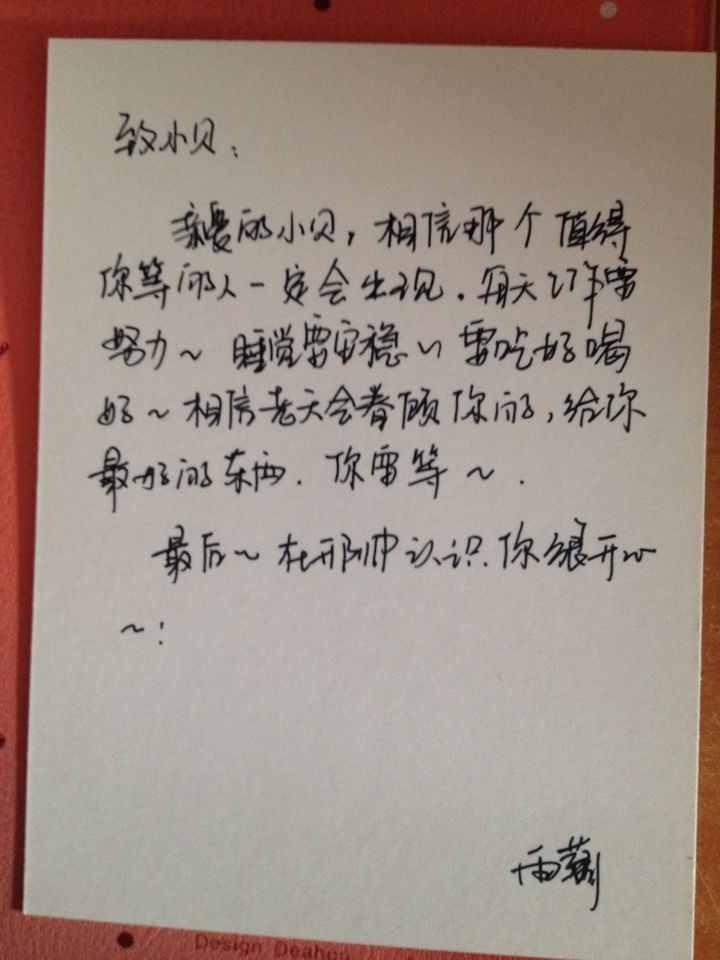 致小贝：
亲爱的小贝，相信那个值得
你等的人一定会出现。每天工作要
努力~ 睡觉要安稳~ 要吃好喝
好~相信老天会眷顾你的，给你
最好的东西. 你要等~.
最后~ 在邢帅认识你很开心
~!
Design Deahun